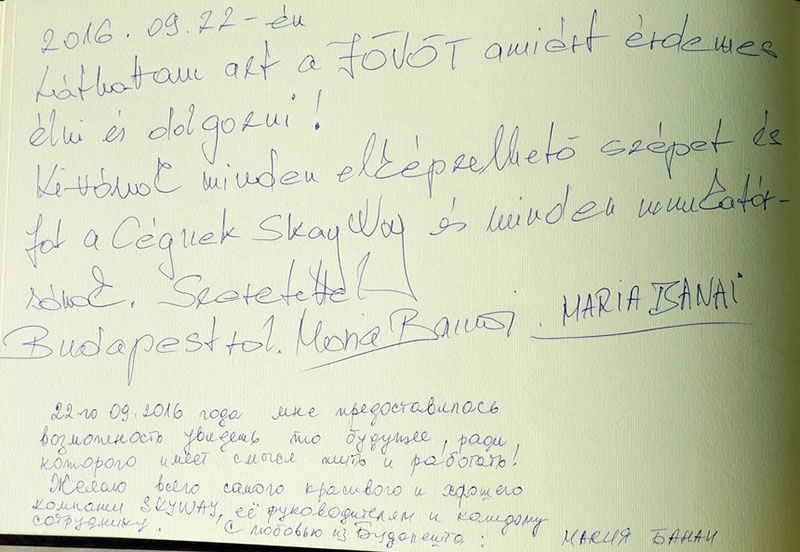 2016. 09. 22-én
Láthattam azt a JÖVŐT amiért érdemes
élni és dolgozni!
Kívánok minden elképzelhető szépet és
jót a Cégnek SkayWay és minden munkatár-
sának. Szeretettel
Budapestről. Maria Banai. MARIA BANAI
22-го 09.2016 года мне предоставилась
возможность увидеть то будущее, ради
которого имеет смысл жить и работать!
Желаю всего самого красивого и хорошего
компании SKYWAY, её руководителям и каждому
сотруднику. С любовью из Будапешта: МАРИЯ БАНАИ